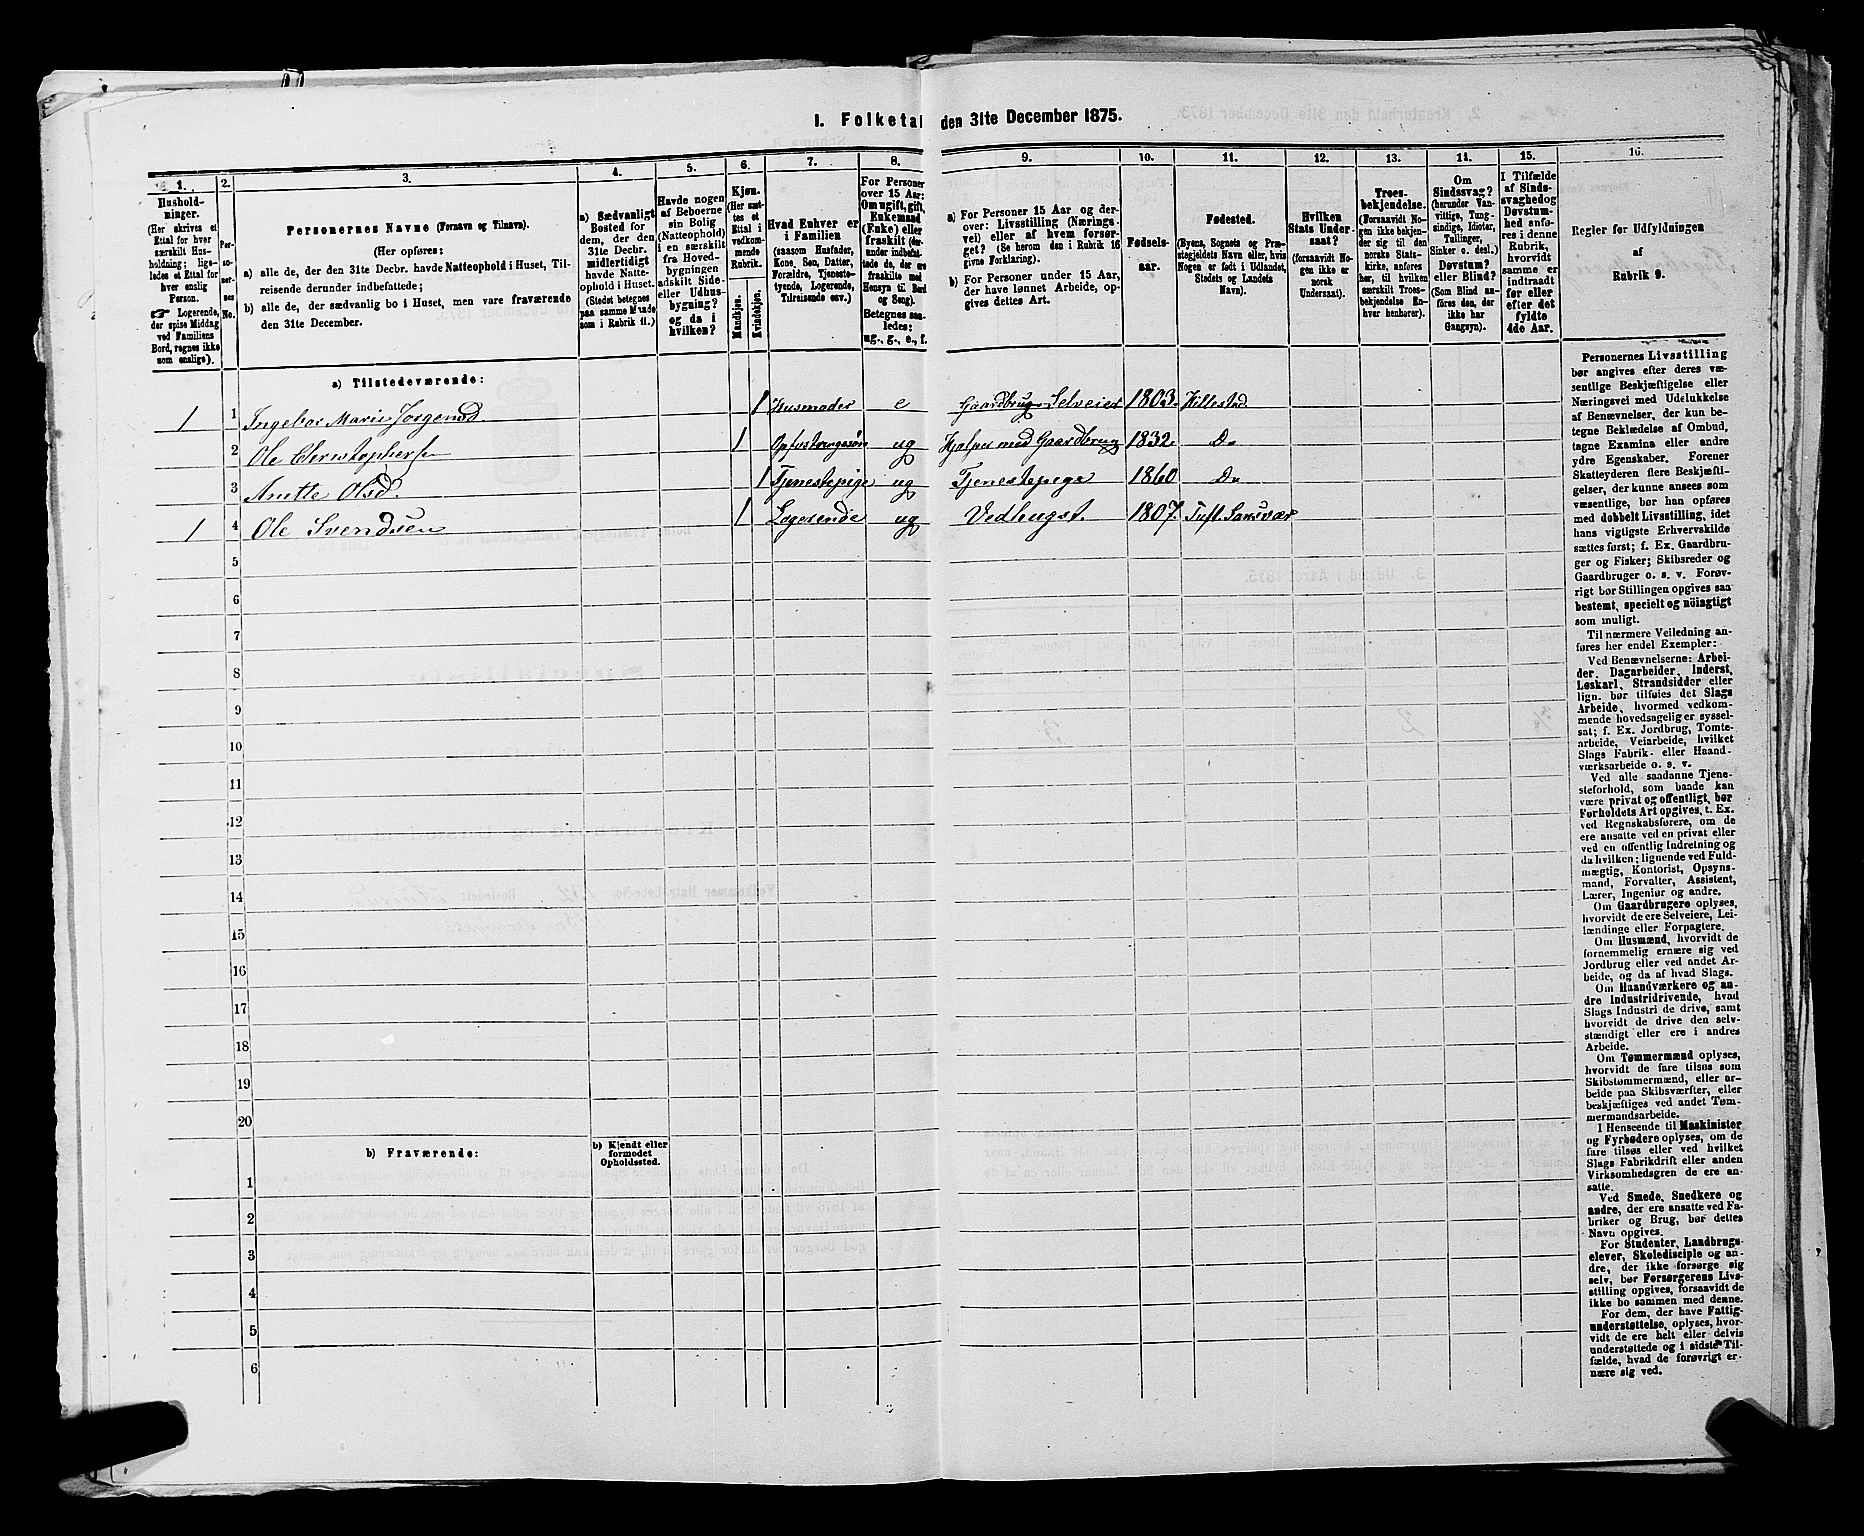 1. Folketal den 31te December 1875.
1. 2. 3. 4. 5. 6. 7. 8. 9. 10. 11. 12. 13. 14. 15. 16.
Hushold-
ninger.
(Her skrives et
Ettal for hver
særskilt Hus-
holdning; lige-
ledes et Ettal for
hver enslig
Person.
☞ Logerende,
der spise Middag
ved Familiens
Bord, regnes ikke
som enslige).
Per-
soner-
nes
No.
Personernes Navne (Fornavn og Tilnavn).
(Her opføres:
a) alle de, der den 31te Decbr. havde Natteophold i Huset, Til-
reisende derunder indbefattede;
b) alle de, der sædvanlig bo i Huset, men vare fraværende
den 31te December.
a) Sædvanligt
Bosted for
dem, der den
31te Decbr.
midlertidigt
havde Natte-
ophold i Huset.
(Stedet betegnes
paa samme Maade
som i Rubrik 11.)
Havde nogen
af Beboerne
sin Bolig
(Natteophold)
i en særskilt
fra Hoved-
bygningen
adskilt Side-
eller Udhus-
bygning?
og da i
hvilken?
Kjøn.
(Her sæt-
tes et
Ettal i
vedkom-
mende
Rubrik.
Mandkjøn.
Kvindekjøn.
Hvad Enhver er
i Familien
(saasom Husfader,
Kone, Søn, Datter,
Forældre, Tjeneste-
tyende, Logerende,
Tilreisende osv.)
For Personer
over 15 Aar:
Om ugift, gift,
Enkemand
(Enke) eller
fraskilt (der-
under indbefat-
tede de, der ere
fraskilte med
Hensyn til Bord
og Seng).
Betegnes saa-
ledes:
ug., g., e., f.
a) For Personer 15 Aar og der-
over: Livsstilling (Nærings-
vei) eller af hvem forsør-
get? (Se herom den i Rubrik 16
givne Forklaring).
b) For Personer under 15 Aar,
der have lønnet Arbeide, op-
gives dettes Art.
Fødsels-
aar.
Fødested.
(Byens, Sognets og Præ-
stegjeldets Navn eller, hvis
Nogen er født i Udlandet,
Stedets og Landets
Navn).
Hvilken
Stats Under-
saat?
(forsaavidt No-
gen ikke er
norsk
Undersaat).
Troes-
bekjendelse.
(Forsaavidt No-
gen ikke bekjen-
der sig til den
norske Stats-
kirke, anføres
her, til hvilken
særskilt Troes-
bekjendelse En-
hver henhører).
Om
Sindssvag?
(herunder Van-
vittige, Tung-
sindige, Idioter,
Tullinger,
Sinker o. desl.)
Døvstum?
eller Blind?
(Som Blind an-
føres den, der
ikke har
Gangsyn).
I Tilfælde
af Sinds-
svaghed og
Døvstum-
hed anfø-
res i denne
Rubrik,
hvorvidt
samme er
indtraadt
før eller
efter det
fyldte
4de Aar.
Regler for Udfyldningen
af
Rubrik 9.
a) Tilstedeværende:
1 1 Ingebor Marie Jørgensd. 1 Husmoder e Gaardbrug Selveier 1803. Hillestad
2 Ole Christophersen 1 Opfostringssøn ug Hjælper med Gaardbrug 1832. Do
3 Anette Olsd. 1 Tjenestepige ug Tjenestepige 1860 Do
1 4 Ole Svendsen 1 Logerende ug Vedhugst. 1807. Tuft. Sansvær
5
6
7
8
9
10
11
12
13
14
15
16
17
18
19
20
b) Fraværende:
b) Kjendt eller
formodet
Opholdssted.
1
2
3
4
5
6
Personernes Livsstilling
bør angives efter deres væ-
sentlige Beskjæftigelse eller
Næringsvei med Udelukkelse
af Benævnelser, der kun be-
tegne Beklædelse af Ombud,
tagne Examina eller andre
ydre Egenskaber. Forener
Skatteyderen flere Beskjæfti-
gelser, der kunne ansees som
væsentlige, bør han opføres
med dobbelt Livsstilling, idet
hans vigtigste Erhvervskilde
sættes først; f. Ex. Gaardbru-
ger og Fisker; Skibsreder og
Gaardbruger o. s. v. Forøv-
rigt bør Stillingen opgives saa
bestemt, specielt og nöiagtigt
som muligt.
Til nærmere Veiledning an-
føres her endel Exempler:
Ved Benævnelserne: Arbei-
der, Dagarbeider, Inderst,
Løskarl, Strandsidder eller
lign. bør tilføies det Slags
Arbeide, hvormed vedkom-
mende hovedsagelig er syssel-
sat; f. Ex. Jordbrug, Tomte-
arbeide, Veiarbeide, hvilket
Slags Fabrik- eller Haand-
værksarbeide o. s. v.
Ved alle saadanne Tjene-
steforhold, som baade kan
være privat og offentligt, bør
Forholdets Art opgives, t. Ex.
ved Regnskabsførere, om de
ere ansatte ved en privat eller
ved en offentlig Indretning og
da hvilken; lignende ved Fuld-
mægtig, Kontorist, Opsyns-
mand, Forvalter, Assistent,
Lærer, Ingeniør og andre.
Om Gaardbrugere oplyses,
hvorvidt de ere Selveiere, Lei-
lændinge eller Forpagtere.
Om Husmænd, hvorvidt de
fornemmelig ernære sig ved
Jordbrug eller ved andet Ar-
beide, og da af hvad Slags.
Om Haandværkere og an-
dre Industridrivende, hvad
Slags Industri de drive, samt
hvorvidt de drive den selv-
stændigt eller ere i andres
Arbeide.
Om Tømmermænd oplyses,
hvorvidt de fare tilsøs som
Skibstømmermænd, eller ar-
beide paa Skibsværfter, eller
beskjæftiges ved andet Tøm-
mermandsarbeide.
I Henseende til Maskinister
og Fyrbødere oplyses, om de
fare tilsøs eller ved hvilket
Slags Fabrikdrift eller anden
Virksomhedsgren de ere an-
satte.
Ved Smede, Snedkere og
andre, der ere ansatte ved Fa-
briker og Brug, bør dettes
Navn opgives.
For Studenter, Landbrugs-
elever, Skoledisciple og an-
dre, der ikke forsørge sig
selv, bør Forsørgerens Livs-
stilling opgives, forsaavidt de
ikke bo sammen med denne.
For dem, der have Fattig-
understøttelse, oplyses, hvor-
vidt de ere helt eller delvis
understøttede og i sidste Til-
fælde, hvad de forøvrigt er-
nære sig ved.